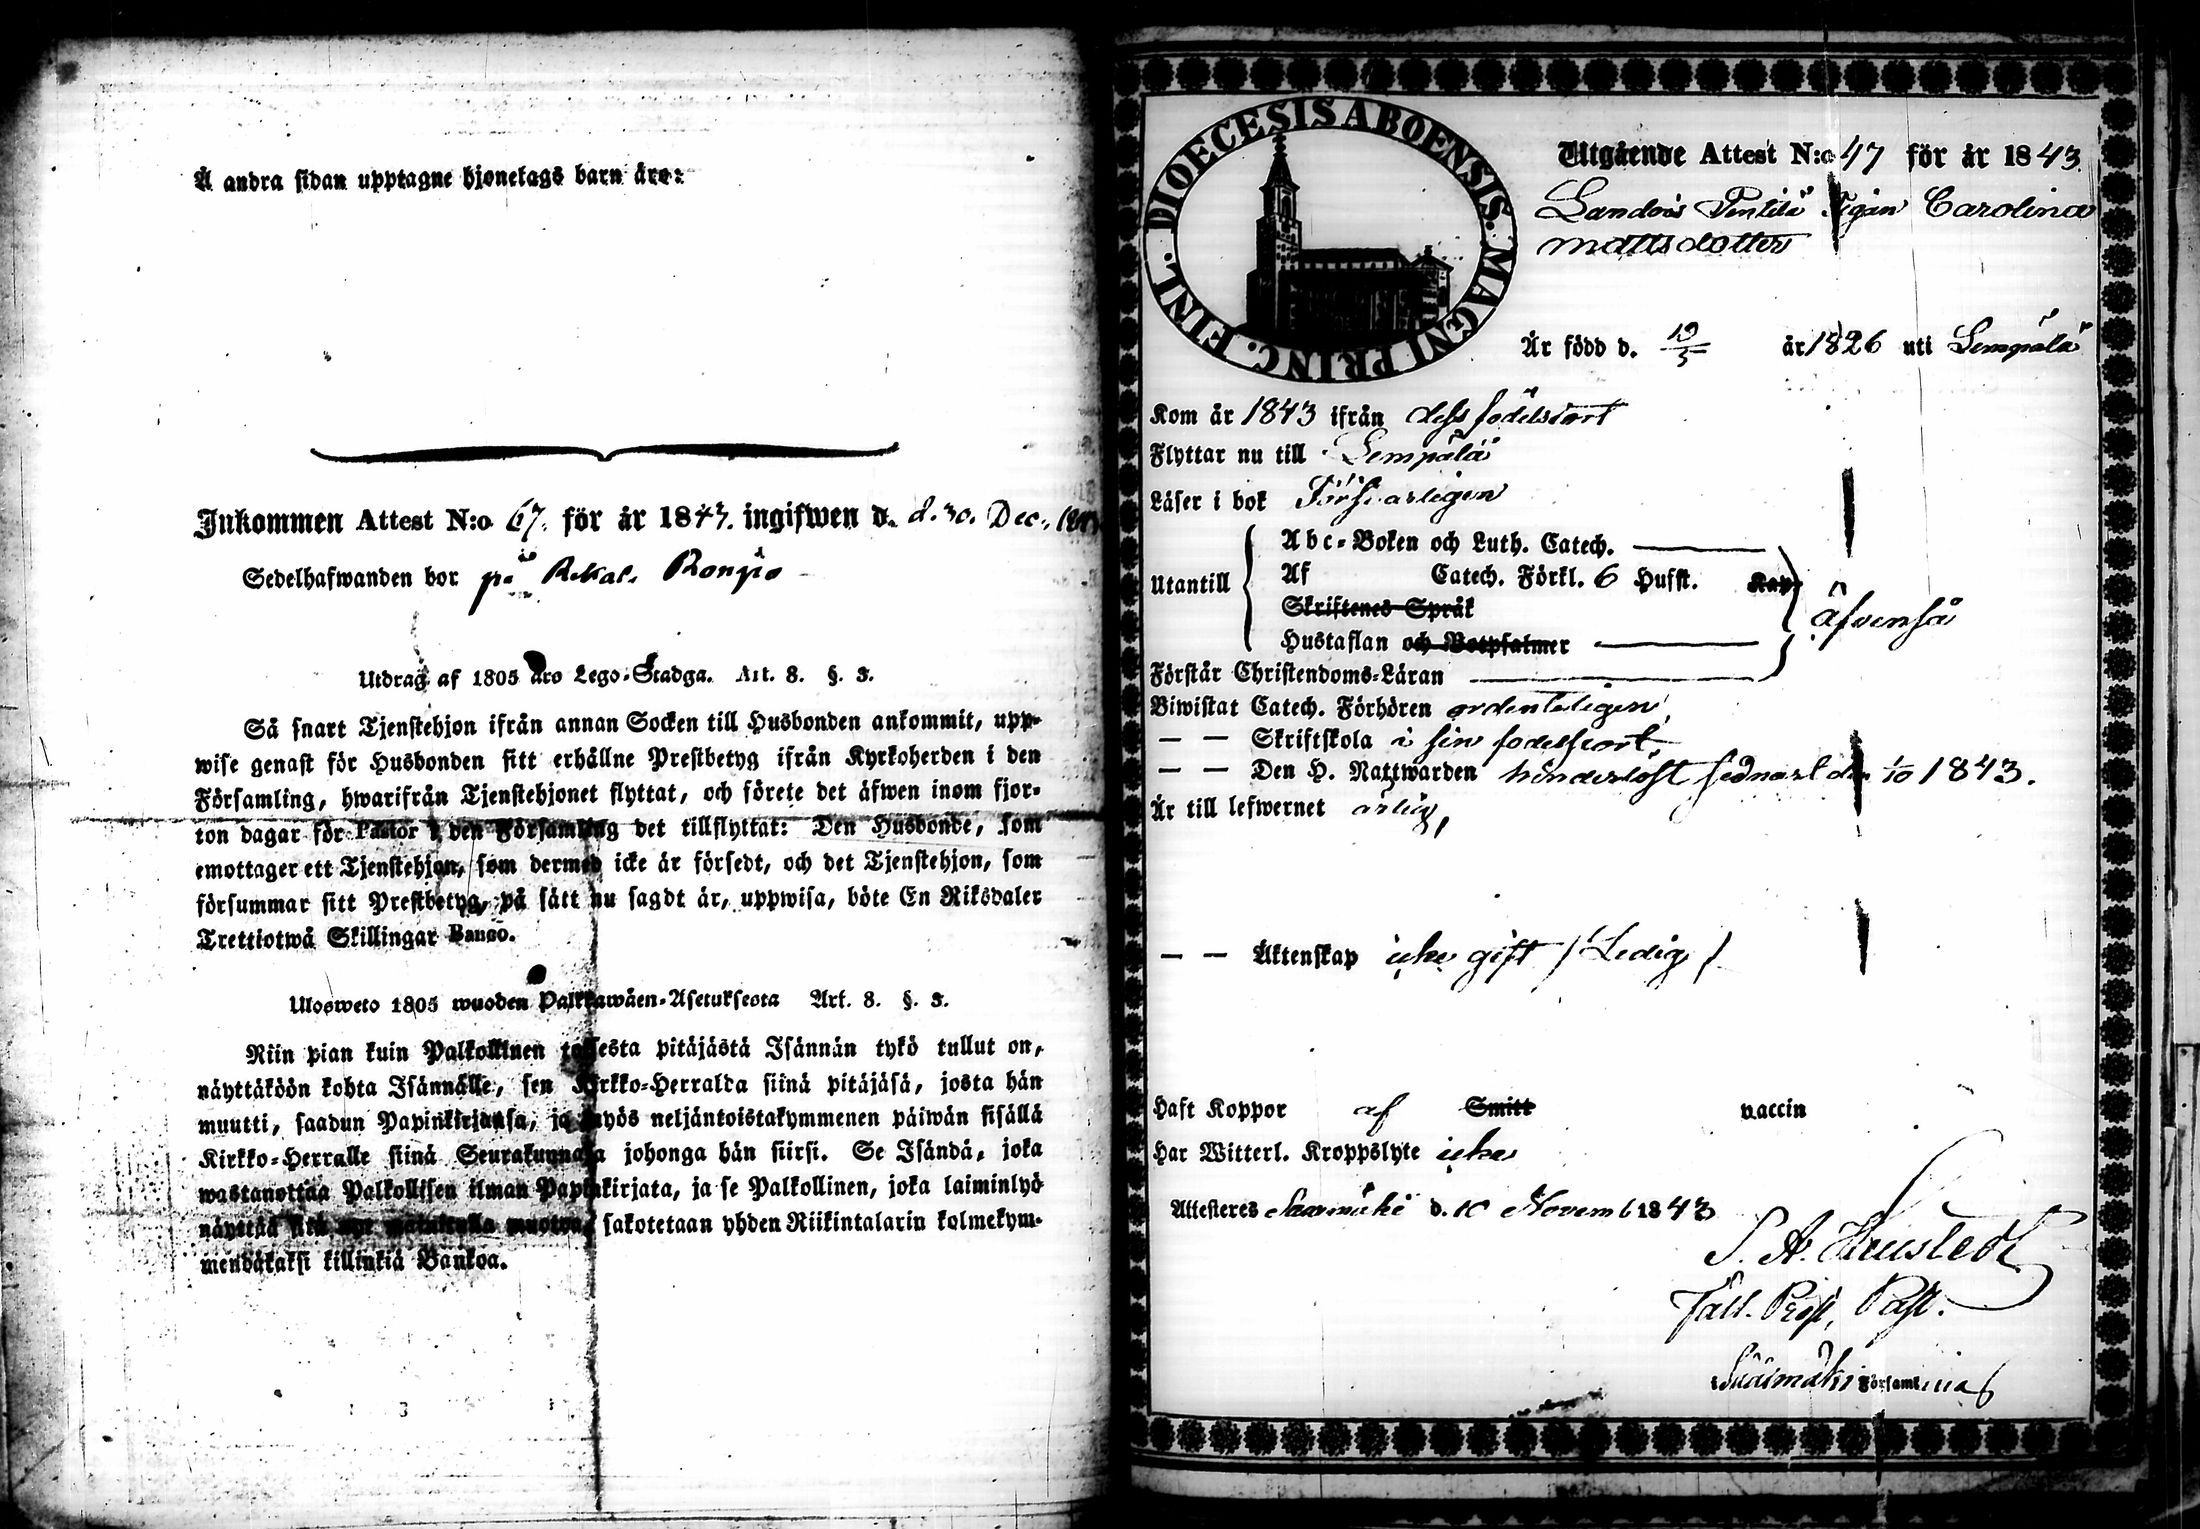 Å andra sidan upptagne hjonelags barn äro:
Inkommen Attest N:o 67. för år 1843. ingifwen d. d. 30. Dec.
Sedelhafwanden bor på
Utdrag af 1805 års Lego-Stadga. Art. 8. §. 3.
Så snart Tjenstehjon ifrån annan Socken till Husbonden ankommit, upp-
wise genast för Husbonden sitt erhållne Prestbetyg ifrån Kyrkoherden i den
Församling, hwarifrån Tjenstehjonet flyttat, och förete det äfwen inom fjor-
ton dagar för Pastor i den Församling det tillflyttat: Den Husbonde, som
emottager ett Tjenstehjon, som dermed icke är försedt, och det Tjenstehjon, som
försummar sitt Prestbetyg, på sätt nu sagdt är, uppwisa, böte En Riksdaler
Trettiotwå Skillingar Banco.
Ulosweto 1805 wuoden Palkkawäen-Asetuksesta Art. 8. §. 3.
Niin pian kuin Palkollinen toisesta pitäjästä Isännän tykö tullut on,
näyttäköön kohta Isännälle, sen Kirkko-Herralda siinä pitäjäsä, josta hän
muutti, saadun Papinkirjansa, ja myös neljäntoistakymmenen päiwän sisällä
Kirkko-Herralle siinä Seurakunnasa johonga hän siirsi. Se Isändä, joka
wastanottaa Palkollisen ilman Papinkirjata, ja se Palkollinen, joka laiminlyö
näyttää sitä nyt mainitulla muotoa, sakotetaan yhden Riikintalarin kolmekym-
mendäkaksi killinkiä Bankoa.
DIOECESIS ABOENSIS. MAGNI PRINC. FINL.
Utgående Attest N:o 47 för år 1843.
Pigan Carolina
Mattsdotter
Är född d. 19/5 år 1826 uti Lempälä
Kom år 1843 ifrån dess födelseort
Flyttar nu till Lempälä
Läser i bok Försvarligen
Utantill
Abc-Boken och Luth. Catech.
Af Catech. Förkl. 6 Hufst. Kap.
Skriftenes Språk
Hustaflan och Botpsalmer
äfvenså
Förstår Christendoms-Läran
Biwistat Catech. Förhören ordenteligen,
— — Skriftskola i sin födelseort,
— — Den H. Nattwarden hinderlöst sednast den 1/10 1843.
Är till lefwernet ärlig,
— — Äktenskap icke gift / Ledig /
Haft Koppor af Smitt vaccin
Har Witterl. Kroppslyte icke
Attesteres Saarimäki d. 10 Novemb 1843
S. A.
Past.
Församling